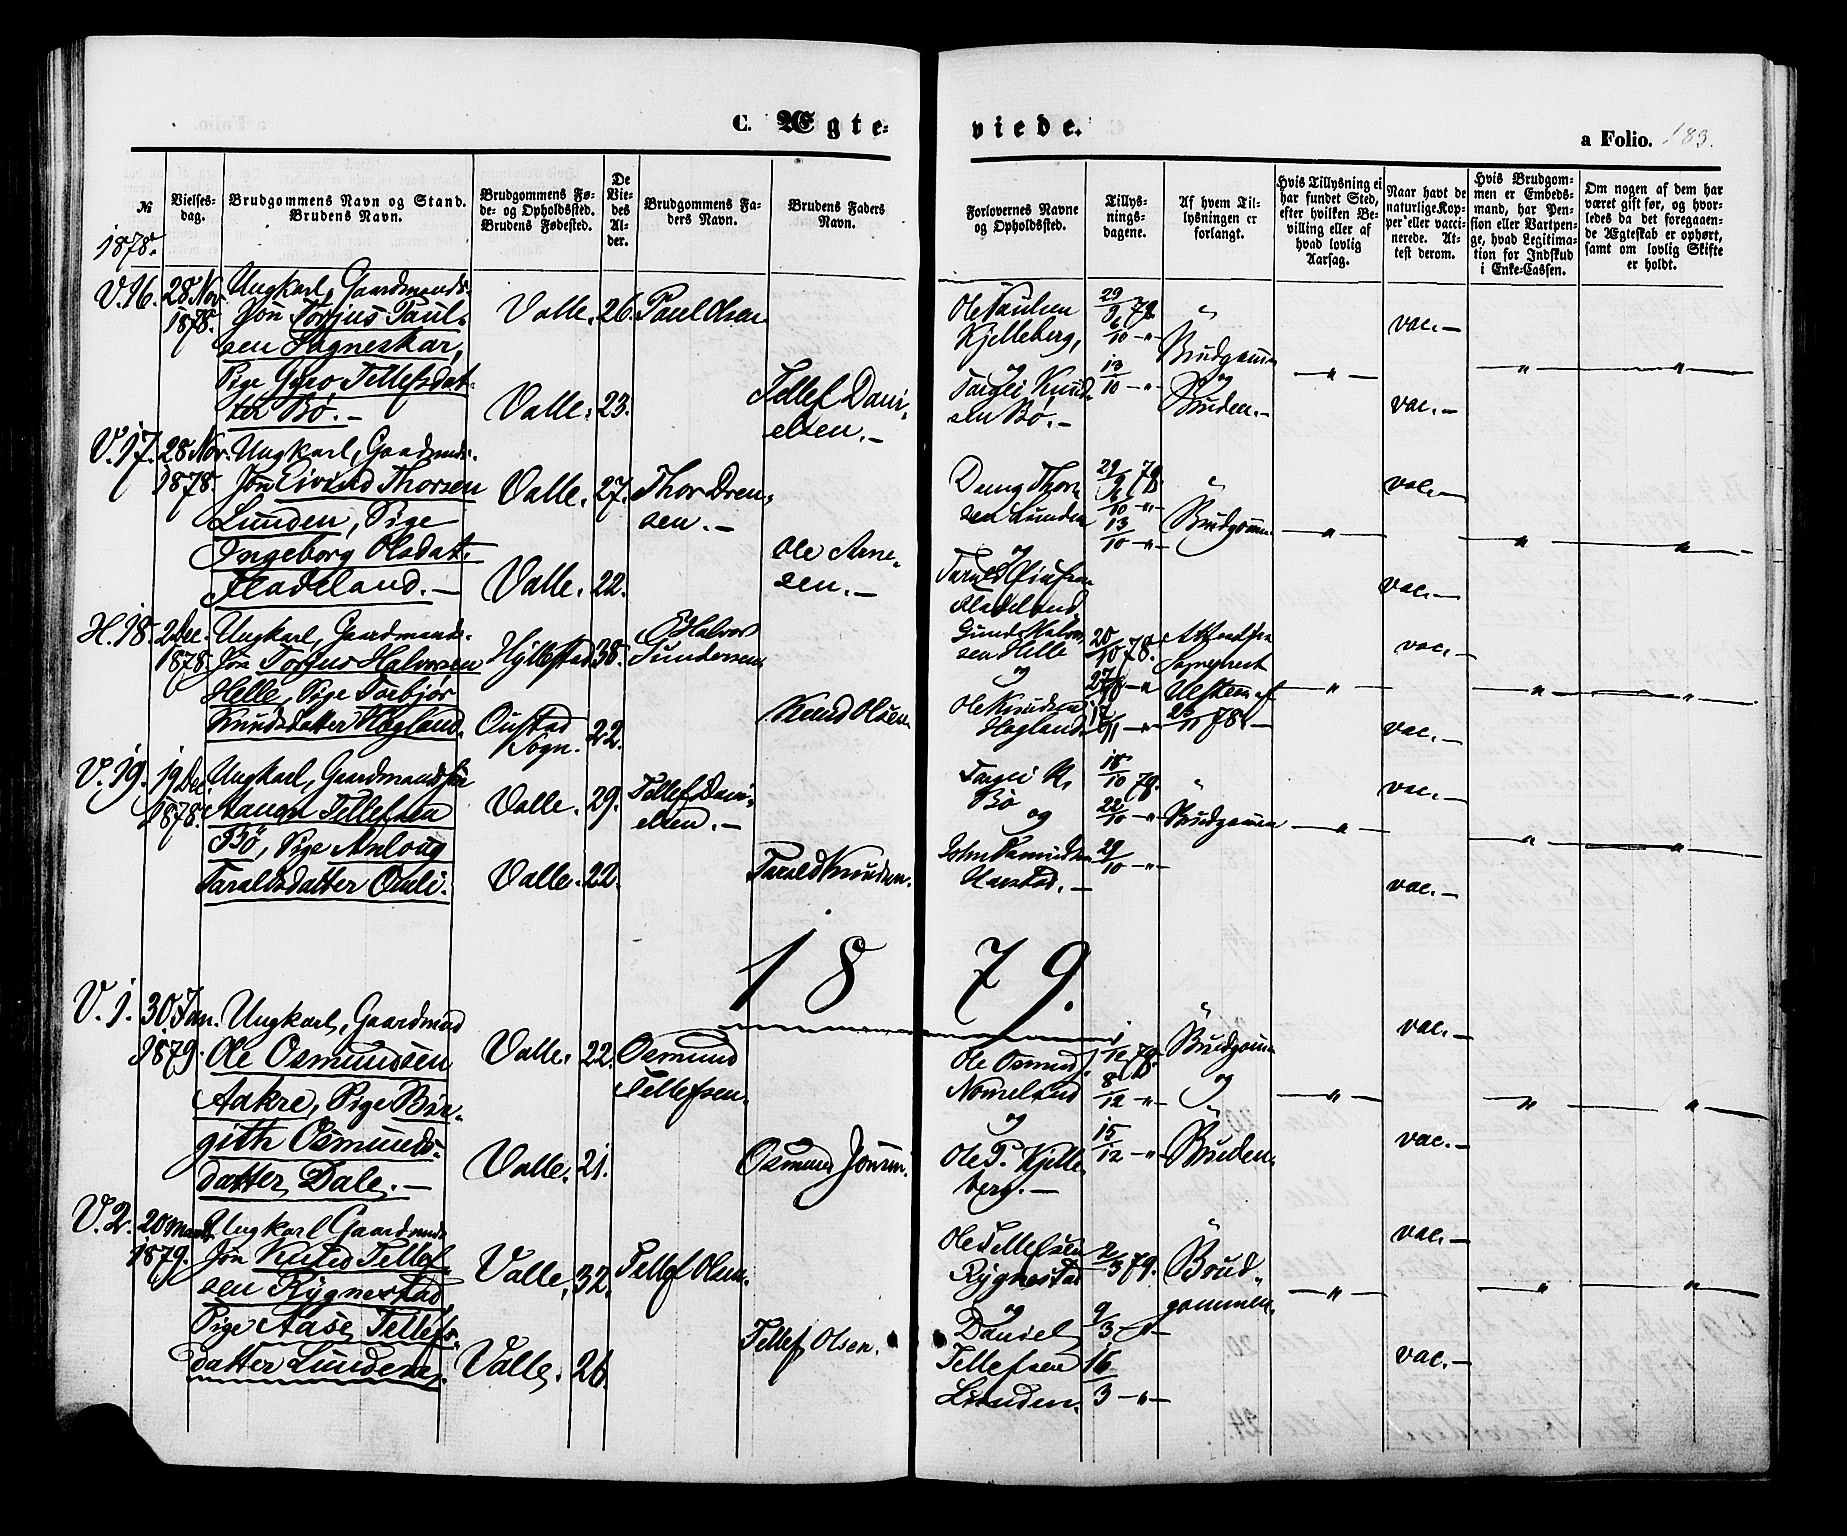 C. Ægte-
viede.
a Folio. 183.
№
Vielses-
dag.
Brudgommens Navn og Stand.
Brudens Navn.
Brudgommens Fø-
de- og Opholdssted.
Brudens Fødested.
De
Vie-
des
Al-
der.
Brudgommens Fa-
ders Navn.
Brudens Faders
Navn.
Forlovernes Navne
og Opholdssted.
Tillys-
nings-
dagene.
Af hvem Til-
lysningen er
forlangt.
Hvis Tillysning ei
har fundet Sted,
efter hvilken Be-
villing eller af
hvad lovlig
Aarsag.
Naar havt de
naturlige Kop-
per eller vacci-
nerede. At-
test derom.
Hvis Brudgom-
men er Embeds-
mand, har Pen-
sion eller Vartpen-
ge, hvad Legitima-
tion for Indskud
i Enke-Cassen.
Om nogen af dem har
været gift før, og hvor-
ledes da det foregaaen-
de Ægteskab er ophørt,
samt om lovlig Skifte
er holdt.
1878.
V. 16.
28 Nov.
1878.
Ungkarl, Gaardmands-
søn Torjus Paul-
sen Hagneskar,
Pige Guro Tellefsdat-
ter Bø. —
Valle. 26. Paul Olsen
Valle. 23.
Tellef Dani-
elsen. —
Ole Paulsen
Kjelleberg,
og
Targei Knud-
sen Bø. —
29/9 78
6/10 — "
13/10 — "
"
Brudgommen
og
Bruden. —
— " —
vac. —
vac. —
— " —
— " —
V. 17.
28 Nov.
1878.
Ungkarl, Gaardmands-
søn Eivind Thorsen
Lunden, Pige
Ingeborg Olsdat-
Fladeland. —
Valle. 27. Thor Dren-
sen. —
Valle. 22.
Ole Arne-
sen. —
Dreng Thor-
sen Lunden
og
Tarald
Fladeland.
29/9 78.
6/10 — "
13/10 — "
"
Brudgommen
— " —
vac. —
vac. —
— " —
— " —
H. 18.
2 Dec.
1878.
Ungkarl, Gaardmands-
søn Torjus Halvorsen
Helle, Pige Torbjør
Knudsdatter Hagland.
Hyllestad 38.
Halvor
Gundersen
Oustad
Sogn. 22.
Knud Olsen
Gunder Halvor-
sen Helle
og
Ole Knudsen
Hagland.
20/10 78.
27/10 — "
17/11 — "
78. —
— " —
vac. —
vac. —
— " —
— " —
V. 19.
19 Dec.
1878.
Ungkarl, Gaardmandssøn
Aanon Tellefsen
Bø, Pige Anloug
Taraldsdatter Omli.
Valle. 29. Tellef Dani-
elsen. —
Valle. 22.
Tarald Knudsen.
Targei K.
Bø
og
John Osmundsen
Harstad. —
15/10 78.
22/10 — "
29/10 — "
"
Brudgommen
— " —
vac. —
vac. —
— " —
— " —
1879.
V. 1.
30 Jan.
1879.
Ungkarl, Gaardmand
Ole Osmundsen
Aakre, Pige Bir-
gith Osmunds-
datter Dale. —
Valle. 22. Osmund
Tellefsen.
Valle. 21.
Osmund
Ole Osmunds.
Nomeland
og
Ole P. Kjelle-
berg. —
1/12 78.
8/12 — "
15/12 — "
"
Brudgommen
og
Bruden.
— " —
vac. —
vac. —
— " —
— " —
V. 2.
20 Marts
1879.
Ungkarl Gaardmands
søn Knud Tellef-
sen Rygnestad
Pige Aase Tellefs-
datter Lunden.
Valle. 32. Tellef Olsen.
Valle. 26.
Tellef Olsen.
Ole Tellefsen
Rygnestad
og
Daniel
Tellefsen
Lunden.
2/3 79.
9/3 — " —
16/3 — " —
"
Brud-
gommen.
— " —
vac. —
vac. —
— " —
— " —